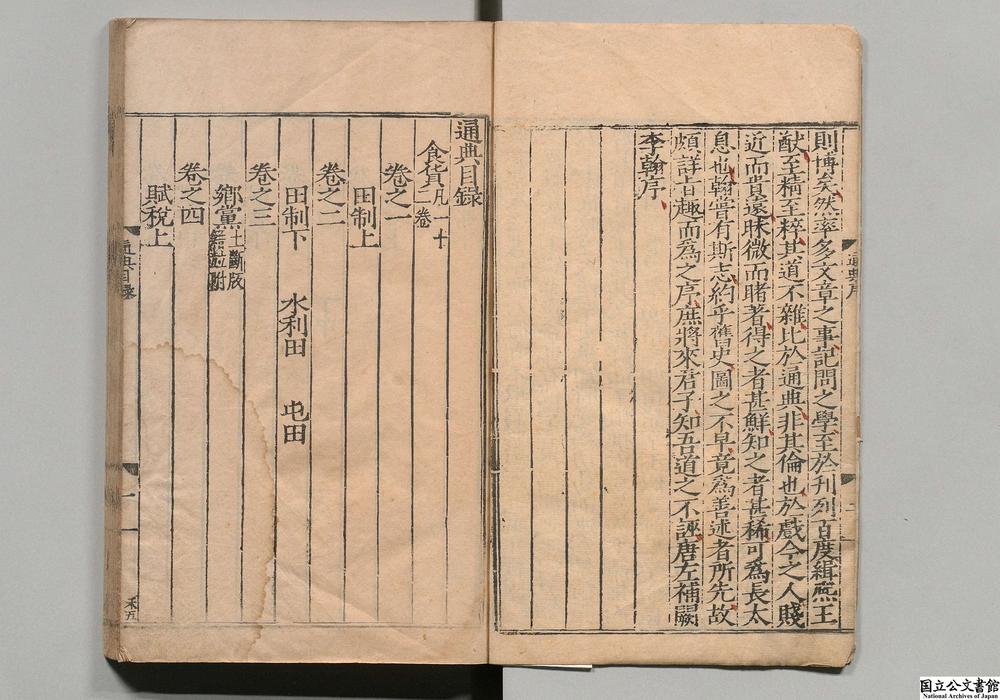 則博矣然率多文章之事記問之學至於刊列百度緝熙王
猷至精至粹其道不雜比於通典非其倫也於戲今之人賤
近而貴遠昧微而睹著得之者甚鮮知之者甚稀可爲長太
息也翰嘗有斯志約乎舊史圖之不早竟爲善述者所先故
頗詳旨趣而爲之序庶將來君子知吾道之不誣唐左補闕
李翰序
通典序
二
通典目録
食貨凡一十二卷
卷之一
田制上
卷之二
田制下 水利田 屯田
卷之三
鄉黨土斷版籍並附
卷之四
賦稅上
通典目錄
一
国立公文書館
National Archives of Japan